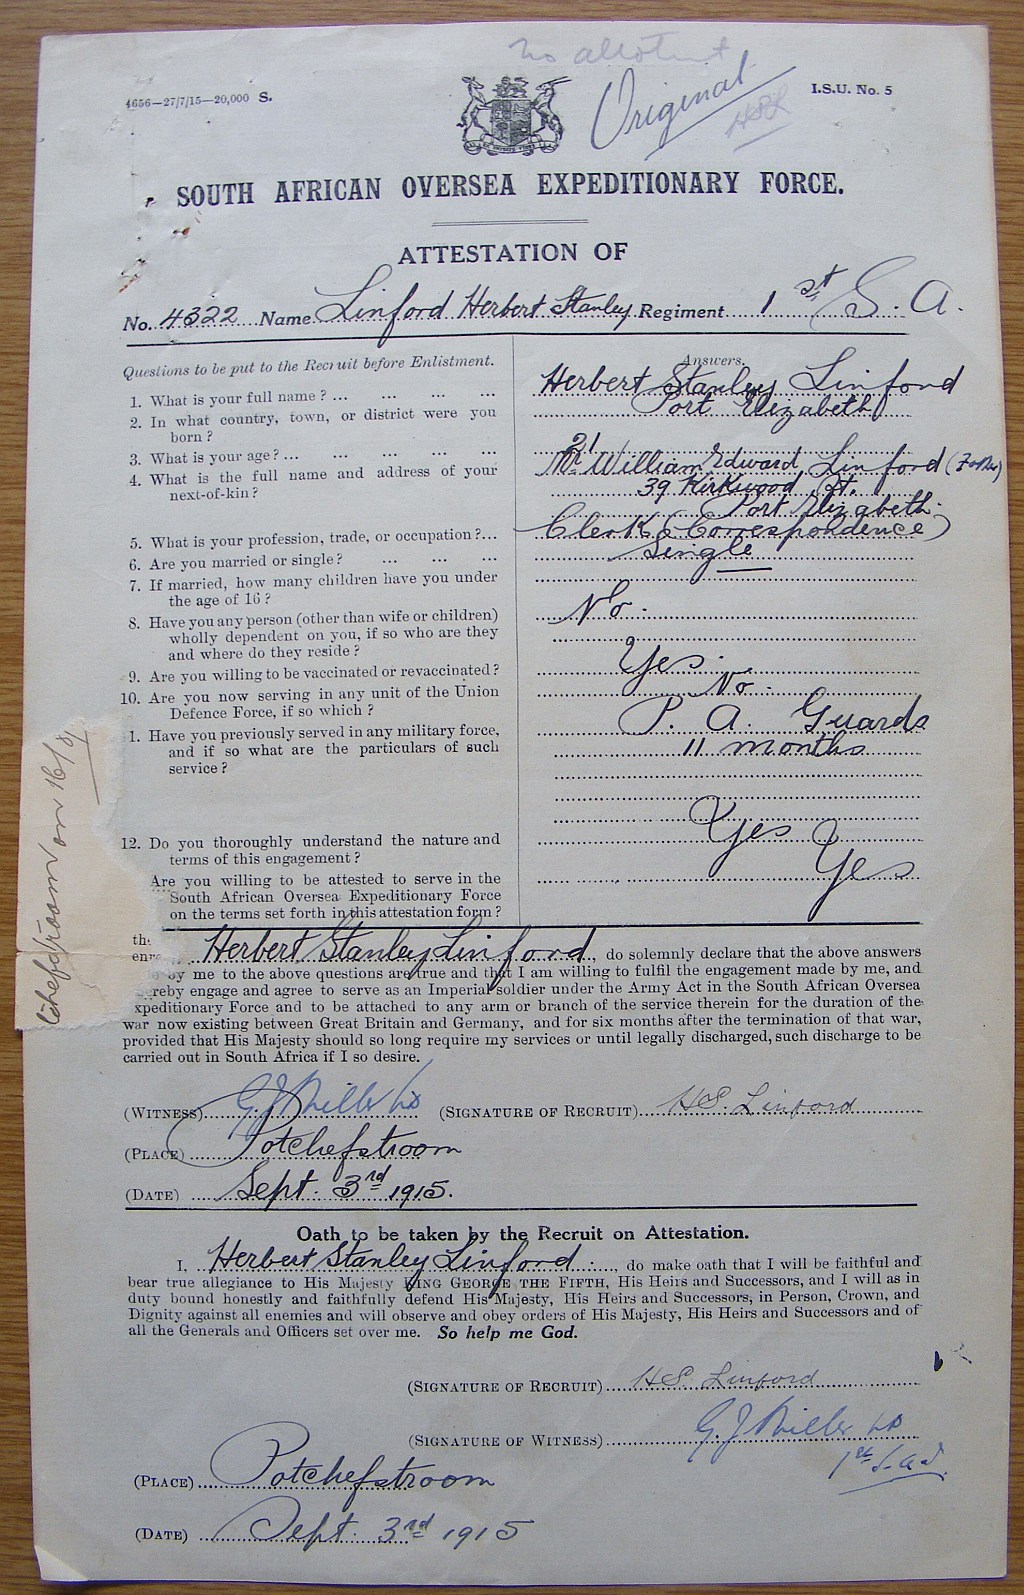 No allotment
4656—27/7/15—20,000 S.
Original
HSL
I.S.U. No. 5
SOUTH AFRICAN OVERSEA EXPEDITIONARY FORCE.
ATTESTATION OF
No. 4322 Name Linford Herbert Stanley Regiment 1st S. A.
Questions to be put to the Recruit before Enlistment.
Answers.
1. What is your full name ? ... ... ... ...
Herbert Stanley Linford
2. In what country, town, or district were you
born ?
Port Elizabeth
3. What is your age ? ... ... ... ... ...
21
4. What is the full name and address of your
next-of-kin ?
Mr William Edward Linford (Father)
39 Kirkwood St.
Port Elizabeth.
5. What is your profession, trade, or occupation ?...
Clerk (Correspondence)
6. Are you married or single ? ... ... ...
Single
7. If married, how many children have you under
the age of 16 ?
8. Have you any person (other than wife or children)
wholly dependent on you, if so who are they
and where do they reside ?
No.
9. Are you willing to be vaccinated or revaccinated ?
Yes.
10. Are you now serving in any unit of the Union
Defence Force, if so which ?
No.
1. Have you previously served in any military force,
and if so what are the particulars of such
service ?
P. A. Guards
11 months
12. Do you thoroughly understand the nature and
terms of this engagement ?
Yes
Are you willing to be attested to serve in the
South African Oversea Expeditionary Force
on the terms set forth in this attestation form ?
Yes
tchefstroom on 16/9
Herbert Stanley Linford, do solemnly declare that the above answers
by me to the above questions are true and that I am willing to fulfil the engagement made by me, and
ereby engage and agree to serve as an Imperial soldier under the Army Act in the South African Oversea
xpeditionary Force and to be attached to any arm or branch of the service therein for the duration of the
war now existing between Great Britain and Germany, and for six months after the termination of that war,
provided that His Majesty should so long require my services or until legally discharged, such discharge to be
carried out in South Africa if I so desire.
(WITNESS) G. J. Miller (SIGNATURE OF RECRUIT) HS Linford
(PLACE) Potchefstroom
(DATE) Sept. 3rd 1915.
Oath to be taken by the Recruit on Attestation.
I, Herbert Stanley Linford, do make oath that I will be faithful and
bear true allegiance to His Majesty KING GEORGE THE FIFTH, His Heirs and Successors, and I will as in
duty bound honestly and faithfully defend His Majesty, His Heirs and Successors, in Person, Crown, and
Dignity against all enemies and will observe and obey orders of His Majesty, His Heirs and Successors and of
all the Generals and Officers set over me. So help me God.
(SIGNATURE OF RECRUIT) HS Linford
(SIGNATURE OF WITNESS) G. J. Miller
1st S.A.I.
(PLACE) Potchefstroom
(DATE) Sept. 3rd 1915